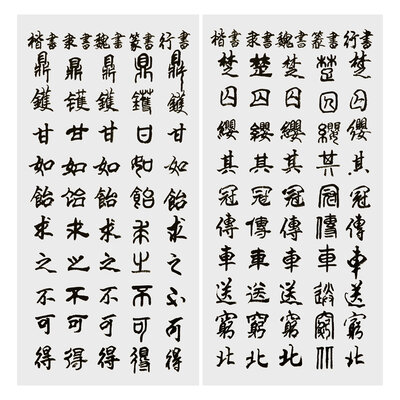 楷書 隶書 魏書 篆書 行書
楚囚纓其冠傳車送窮北
楚囚纓其冠傳車送窮北
楚囚纓其冠傳車送窮北
楚囚纓其冠傳車送窮北
楚囚纓其冠傳車送窮北
楷書 隶書 魏書 篆書 行書
鼎鑊甘如飴求之不可得
鼎鑊甘如飴求之不可得
鼎鑊甘如飴求之不可得
鼎鑊甘如飴求之不可得
鼎鑊甘如飴求之不可得